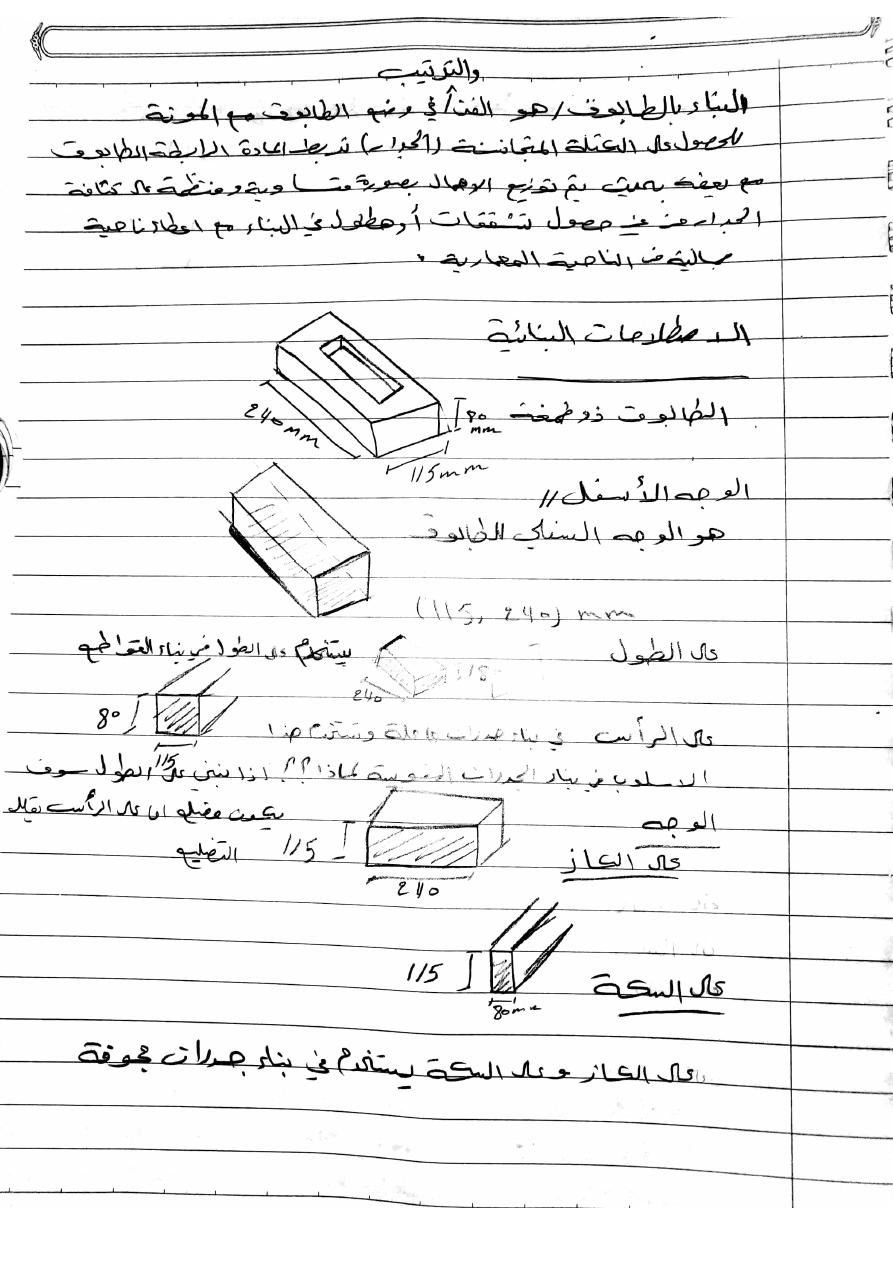 والترتيب
البناء بالطابوق / هو الفن في وضع الطابوق مع المونة
للحصول على الكتلة المتجانسة (الجدار) تربط المادة الرابطة الطابوق
مع بعضه بحيث يتم توزيع الاحمال بصورة متساوية ومنتظمة على كثافة
الجدار من غير حصول تشققات أو هطول في البناء مع اعطاء ناحية
جمالية من الناحية المعمارية .
الاصطلاحات البنائية
الطابوق ذو طمغة
240 mm
80 mm
115 mm
الوجه الأسفل //
هو الوجه السفلي للطابوق
(115, 240) mm
على الطول
يستخدم على الطول في بناء القواطع
115
240
على الرأس في بناء جدران حاملة وستخدم هذا
80
115
الاسلوب في بناء الجدران المقوسة لماذا ؟؟ اذا نبني على الطول سوف
يكون مضلع اما على الرأس يقلل
التضليع
الوجه
على الكاز
115
240
على السكة
115
80mm
على الكاز وعلى السكة يستخدم في بناء جدران مجوفة